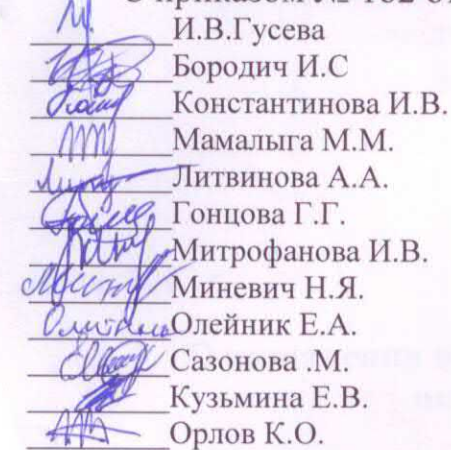 И.В.Гусева
Бородич И.С
Константинова И.В.
Мамалыга М.М.
Литвинова А.А.
Гонцова Г.Г.
Митрофанова И.В.
Миневич Н.Я.
Олейник Е.А.
Сазонова .М.
Кузьмина Е.В.
Орлов К.О.